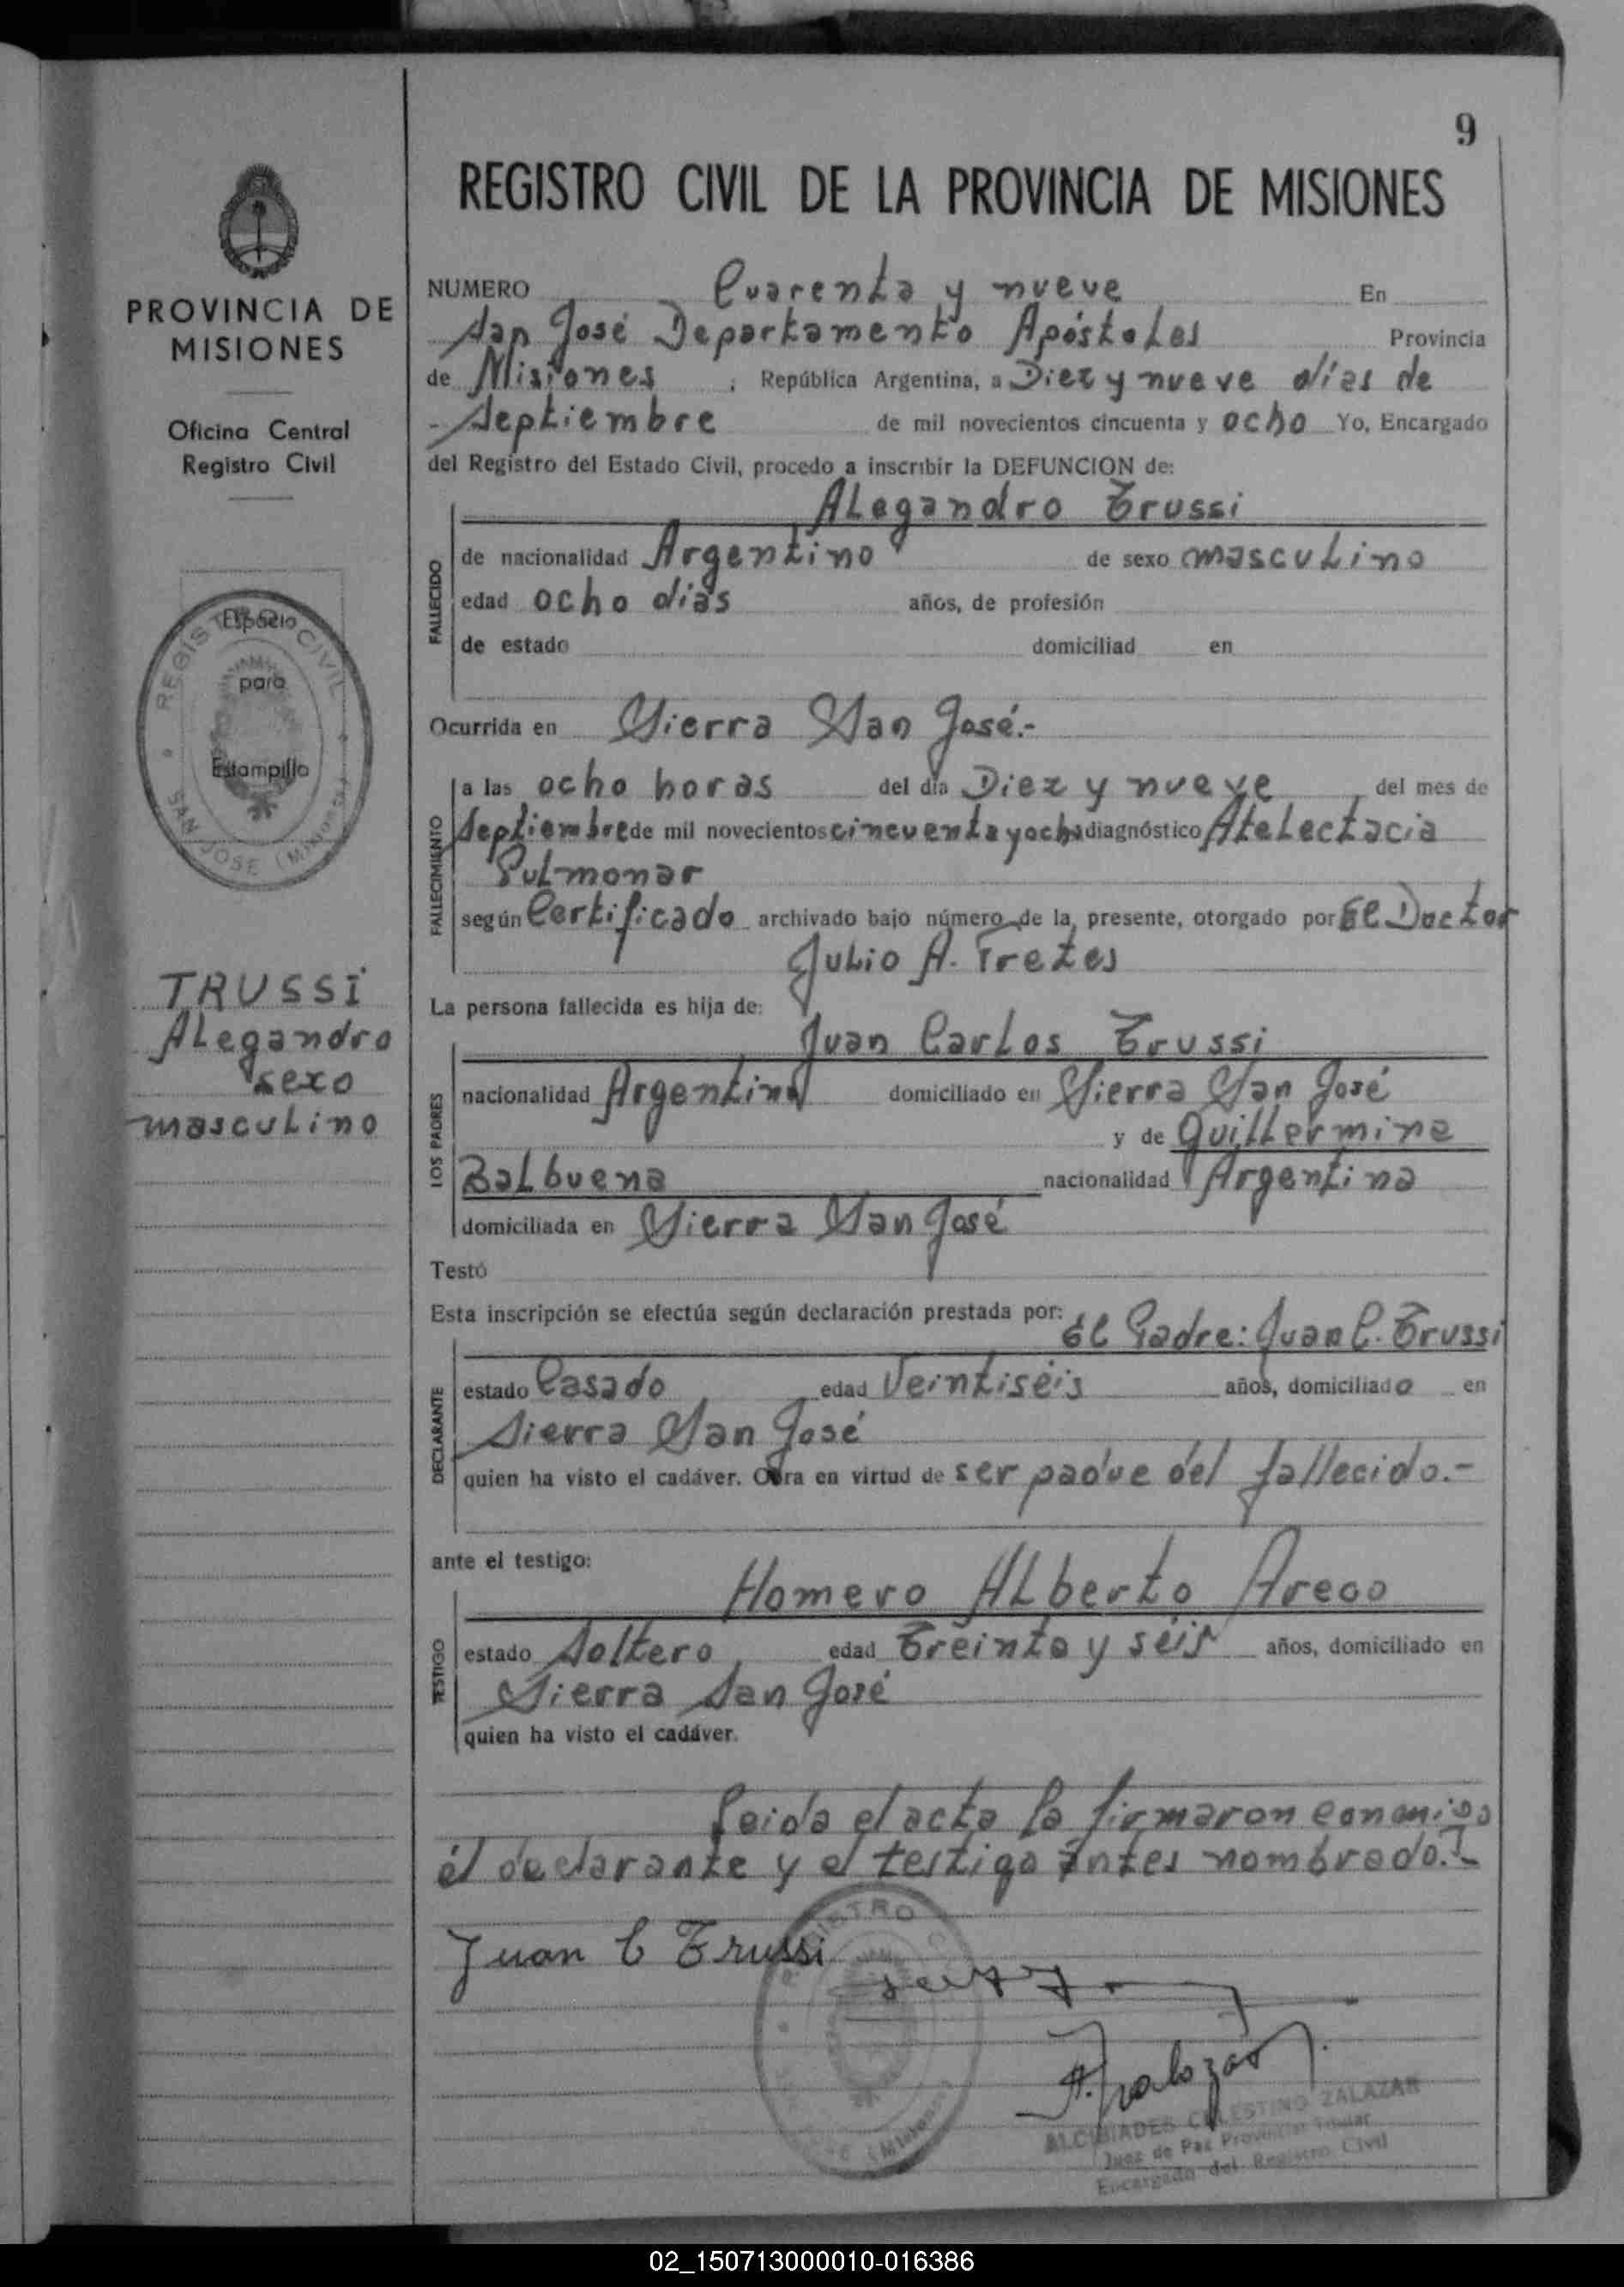 9
REGISTRO CIVIL DE LA PROVINCIA DE MISIONES
PROVINCIA DE
MISIONES
Oficina Central
Registro Civil
NUMERO Cuarenta y nueve En
San José Departamento Apóstoles Provincia
de Misiones ; República Argentina, a Diez y nueve días de
Septiembre de mil novecientos cincuenta y ocho Yo, Encargado
del Registro del Estado Civil, procedo a inscribir la DEFUNCION de:
FALLECIDO
Alegandro Trussi
de nacionalidad Argentino de sexo masculino
edad ocho dias años, de profesión
de estado domiciliad en
Espacio
para
Estampilla
REGISTRO CIVIL
SAN JOSE (Misiones)
Ocurrida en Sierra San José.-
FALLECIMIENTO
a las ocho horas del día Diez y nueve del mes de
Septiembre de mil novecientos cincuenta y ocho diagnóstico Atelectacia
Pulmonar
según Certificado archivado bajo número de la presente, otorgado por El Doctor
Julio A. Tretes
TRUSSI
Alegandro
sexo
masculino
La persona fallecida es hija de:
LOS PADRES
Juan Carlos Trussi
nacionalidad Argentina domiciliado en Sierra San José
y de Guillermina
Balbuena nacionalidad Argentina
domiciliada en Sierra San José
Testó
Esta inscripción se efectúa según declaración prestada por:
DECLARANTE
El Padre: Juan C. Trussi
estado Casado edad Veintiséis años, domiciliado en
Sierra San José
quien ha visto el cadáver. Obra en virtud de ser padre del fallecido.-
ante el testigo:
TESTIGO
Homero Alberto Areco
estado Soltero edad Treinta y séis años, domiciliado en
Sierra San José
quien ha visto el cadáver.
Leida el acta la firmaron conmigo
él declarante y el testigo antes nombrado.-
Juan C Trussi
REGISTRO
(Misiones)
A. Zalazar
ALCIBIADES CELESTINO ZALAZAR
Juez de Paz Provincial Titular
Encargado del Registro Civil
02_150713000010-016386